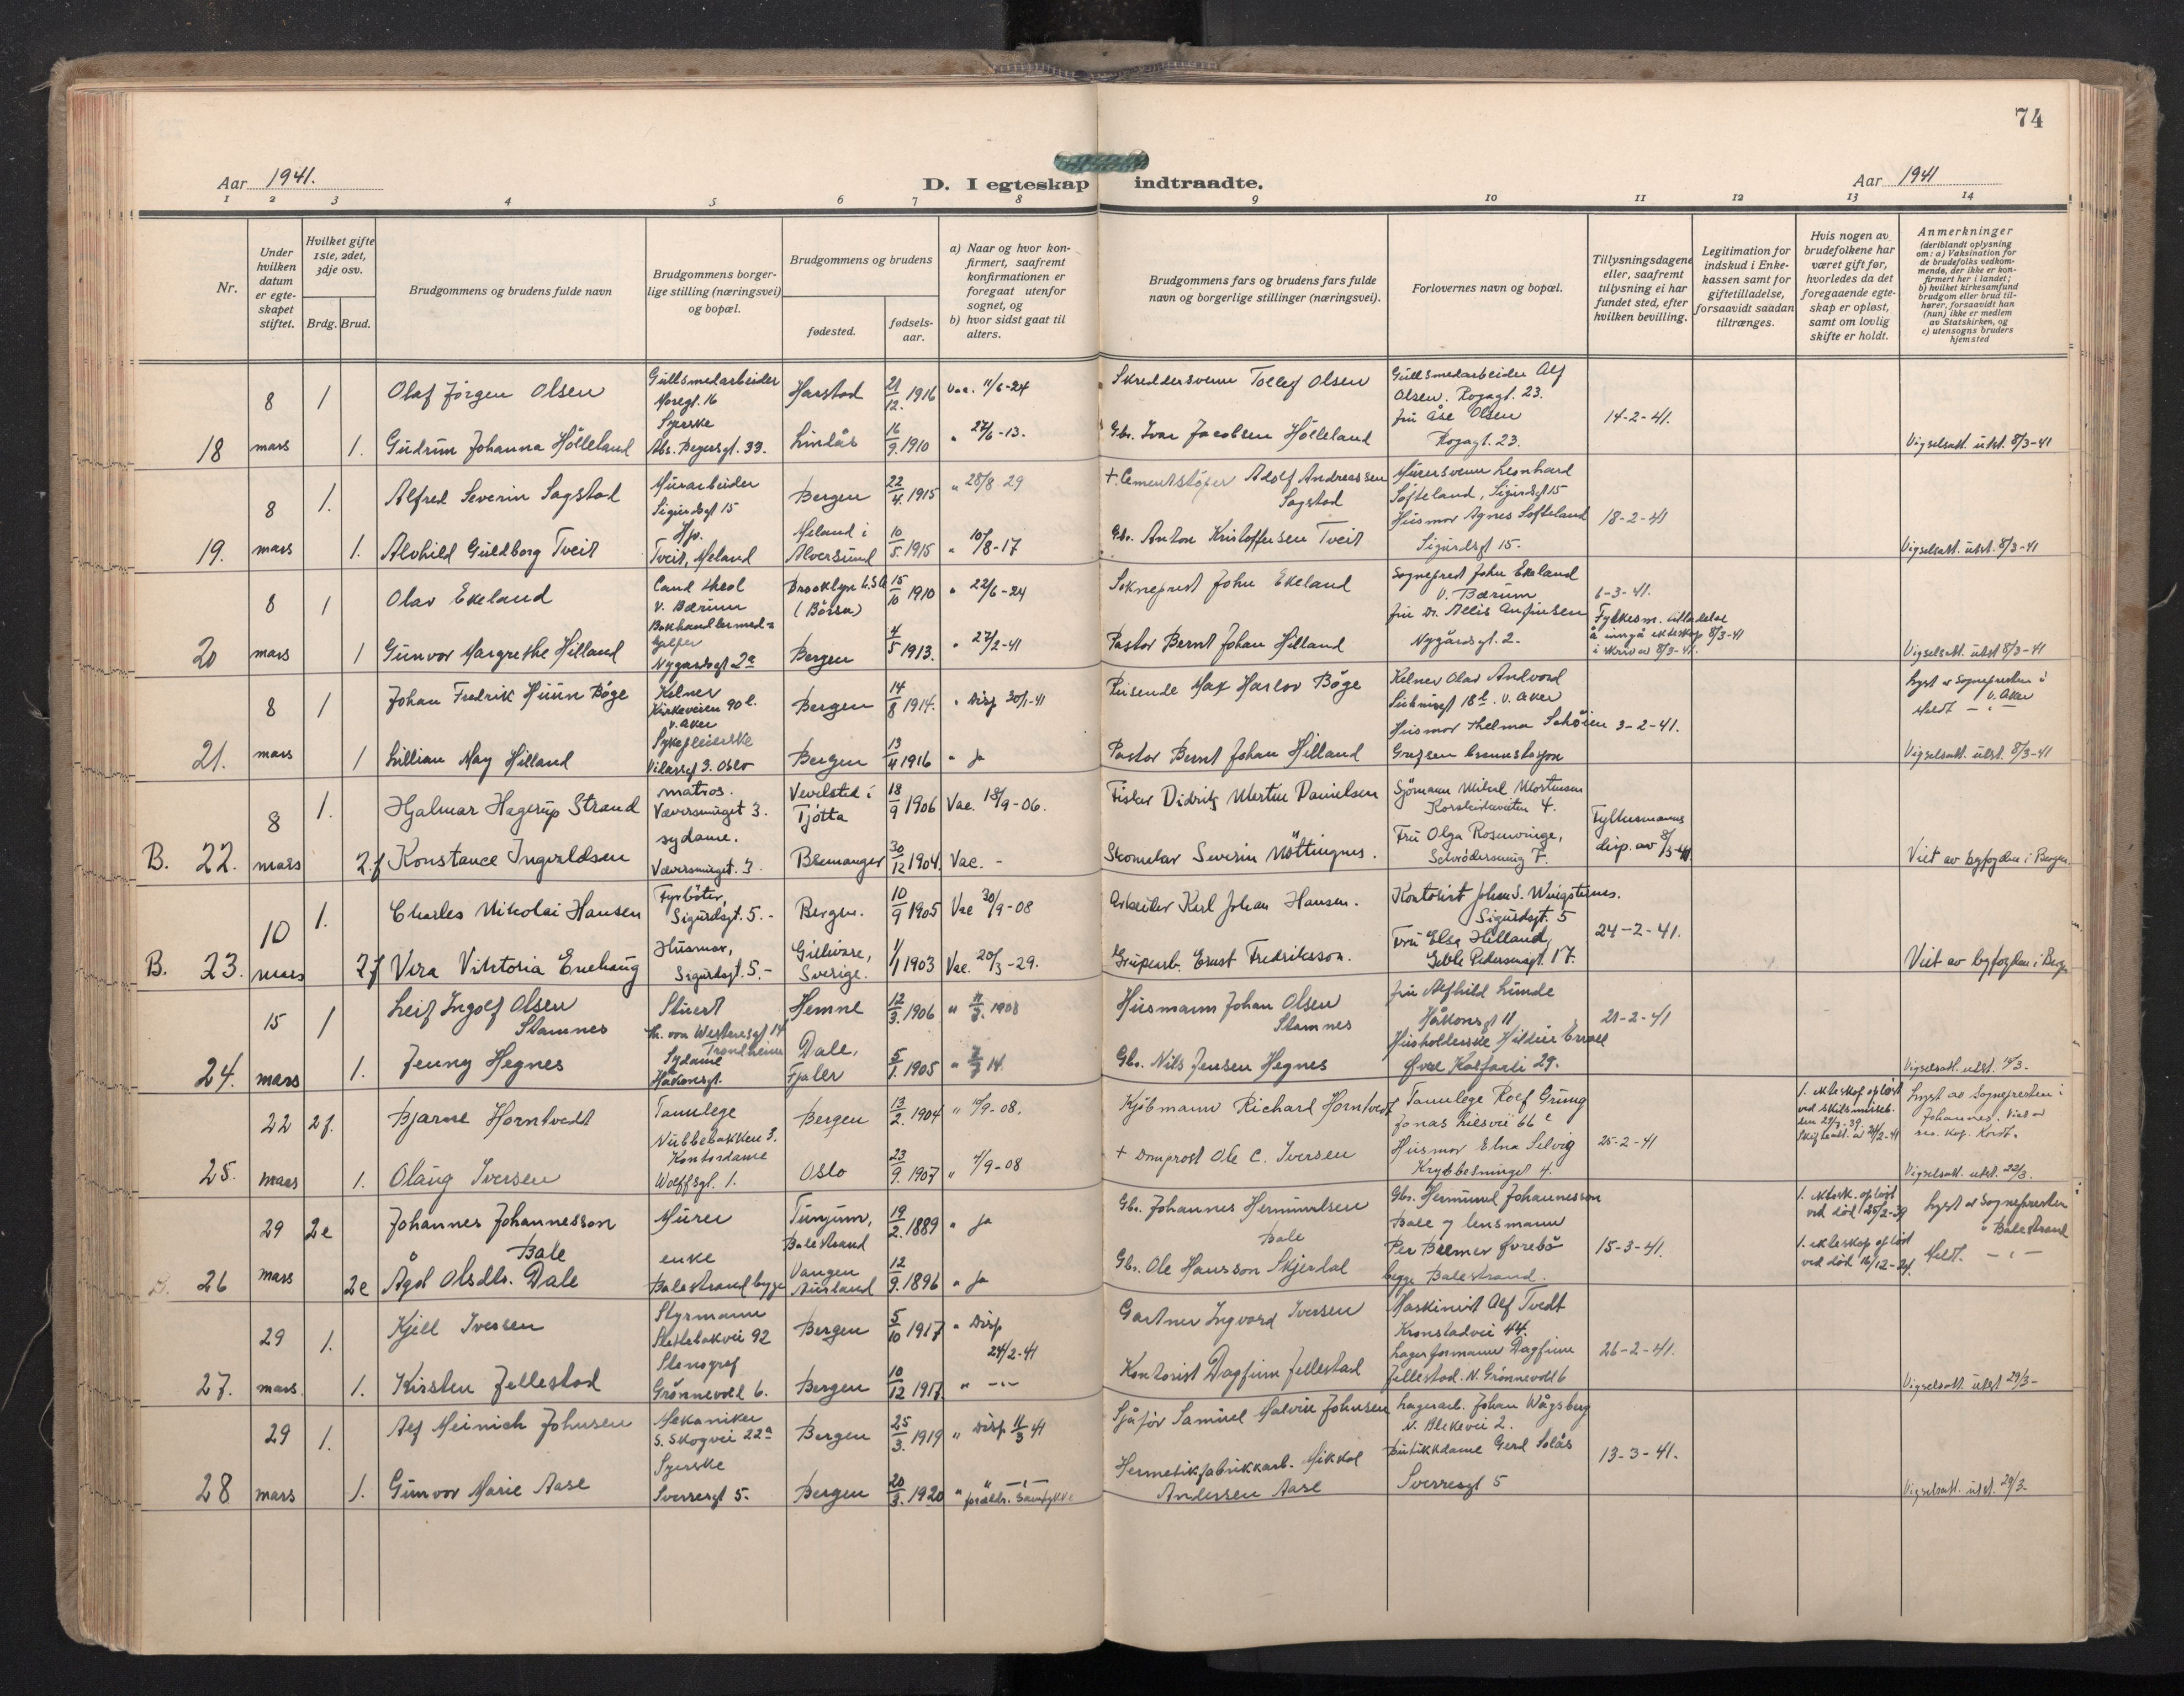 74
Aar 1941.
D. I egteskap indtraadte.
Aar 1941
1 2 3 4 5 6 7 8 9 10 11 12 13 14
Nr.
Under hvilken datum er egte-skapet stiftet.
Hvilket gifte 1ste, 2det, 3dje osv.
Brdg. Brud.
Brudgommens og brudens fulde navn
Brudgommens borger-lige stilling (næringsvei) og bopæl.
Brudgommens og brudens
fødested.
fødsels-aar.
a) Naar og hvor kon-firmert, saafremt konfirmationen er foregaat utenfor sognet, og
b) hvor sidst gaat til alters.
Brudgommens fars og brudens fars fulde navn og borgerlige stillinger (næringsvei).
Forlovernes navn og bopæl.
Tillysningsdagene eller, saafremt tillysning ei har fundet sted, efter hvilken bevilling.
Legitimation for indskud i Enke-kassen samt for giftetilladelse, forsaavidt saadan tiltrænges.
Hvis nogen av brudefolkene har været gift før, hvorledes da det foregaaende egte-skap er opløst, samt om lovlig skifte er holdt.
Anmerkninger
(deriblandt oplysning om: a) Vaksination for de brudefolks vedkom-mende, der ikke er kon-firmert her i landet; b) hvilket kirkesamfund brudgom eller brud til-hører, forsaavidt han (hun) ikke er medlem av Statskirken, og c) utensogns bruders hjemsted
8 1 Olaf Jörgen Olsen Gullsmedarbeider Harstad 21/12. 1916 Vac. 11/6-24 Skreddersvenn Tollef Olsen Gullsmedarbeider Alf
Olsen. 23.
Syerske fru Åse Olsen 14-2-41.
18 mars 1. Gudrun Johanna Hölleland Abs. Beyersgt. 33. Lindås 16/9. 1910 " 27/6-13. Gbr. Ivar Jacobsen Hölleland 23. Vigselsatt. utst. 8/3-41
8 1. Alfred Severin Sagstad Murarbeider Bergen 22/4. 1915 " 28/8 29 + Cementstöper Adolf Andreassen Murersvenn Leonhard
Sigurdsgt 15 Sagstad Softeland, Sigurdsgt 15
Hjv. Meland i Husmor Agnes Softeland 18-2-41
19. mars 1. Alvhild Guldborg Tveit Tveit, Meland Alversund 10/5. 1915 " 10/8-17 Gbr. Anton Kristoffersen Tveit Sigurdsgt 15. Vigselsatt. utst. 8/3-41
8 1 Olav Ekeland Cand theol Brooklyn U.S.A. 15/10 1910 " 22/6-24 Sokneprest John Ekeland Sogneprest John Ekeland
V. Bærum (Börsa) V. Bærum 6-3-41.
fru Dr. Allis Fylkesm. tilladelse
å inngå ekteskap 8/3-41
20 mars 1 Gunvor Margrethe Hilland Nygardsgt 2a Bergen 4/5 1913. " 27/2-41 Pastor Bernt Johan Hilland Nygårdsgt. 2. Vigselsatt. utst 8/3-41
8 1 Johan Fredrik Huun Böge Kelner Bergen 14/8 1914. " Disp 30/1-41 Reisende Max Harlov Böge Kelner Olav Andvord Lyst av Sognepresten i
Kirkeveien 90 l. 18 . V. Aker V. Aker
V. Aker Husmor Thelma Schöien 3-2-41.
Sykepleierske
21. mars 1 Lillian May Hilland 3. Oslo Bergen 13/4 1916 " ja Pastor Bernt Johan Hilland Grefsen Vigselsatt. utst. 8/3-41
8 1. Hjalmar Hagerup Strand matros. Vevelstad i 18/9 1906 Vac. 18/9-06. Fisker Didrik Martin Danielsen Sjömann Mikal Mortensen
Væversmuget 3. Tjötta Korskirkealm. 4. Fylkesmanns
sydame. Fru Olga Rosenvinge, disp. av 8/3-41
B. 22. mars 2.f Konstance Ingvaldsen Væversmuget. 3. Bremanger 30/12 1904. Vac. - Skomaker Severin Möttingnes. Schrödersmug 7. Viet av byfogden i Bergen.
10 1. Charles Nikolai Hansen Fyrböter, Bergen. 10/9 1905 Vac 30/9-08 Arbeider Karl Johan Hansen. Kontorist Johan S.
Sigurdsgt. 5.- Sigurdsgt. 5
Husmor, Gellivare, Fru Elsa Hilland, 24-2-41.
B. 23. mars 2f Vera Viktoria Enehaug Sigurdsgt. 5.- Sverige. 1/1 1903 Vac. 20/3-29. Grubearb. Ernst Fredriksson. Geble Pedersensgt. 17. Viet av byfogden i Bergen
15 1 Leif Ingolf Olsen Stuert Hemne 12/3. 1906 " 1908 Husmann Johan Olsen fru Alfhild Lunde
Stamnes Th. von Westensgt 14 Stamnes Håkonsgt 11 21-2-41
Trondheim
Sydame Dale, Husholderske
24. mars 1. Jenny Hegnes Håkonsgt. Fjaler 5/1. 1905 " 14. Gbr. Nils Jensen Hegnes Övre Kalfarli 29. Vigselsatt. utst. 15/3.
22 2f. Bjarne Horntvedt Tannlege Bergen 13/2. 1904 " 15/9-08. Kjöbmann Richard Horntvedt Tannlege Rolf Grung 1. ekteskap oplöst Lyst av Sognepresten i
Nubbebakken 3. Jonas Liesvei 66 ved skilsmisseb. Johannes. Viet av
Kontordame Husmor Elna Selvig 25-2-41 res. kap. Koldt.
25. mars 1. Olaug Iversen Wolffsgt. 1. Oslo 23/9. 1907 " 4/9-08 + Domprost Ole C. Iversen Krybbesmuget 4. Vigselsatt. utst. 22/3.
29 2e Johannes Johannesson Murer Tunjum, 19/2. 1889 " ja Gbr. Johannes Hermundsen Gbr. Hermund Johannesson 1. ektesk. oplöst Lyst av Sognepresten
Bale Balestrand Bale Bale og lensmann ved död 25/2-39 i Balestrand
enke Vangen Per Bremer Övrebö 15-3-41. 1. ekteskap oplöst
26 mars 2e Ågot Olsdtr. Dale Balestrand begge Aurland 12/9. 1896 " ja Gbr. Ole Hansson Skjerdal begge Balestrand. ved död 16/12-24.
29 1. Kjell Iversen Styrmann Bergen 5/10 1917 " Disp Gartner Ingvard Iversen Maskinist Alf Tvedt
Slettebakvei 92 24/2-41 Kronstadvei 44.
Stenograf Lagerformann Dagfinn 26-2-41.
27. mars. 1. Kirsten Jellestad Grönnevoll 6. Bergen 10/12 1917 " -"- Kontorist Dagfinn Jellestad Jellestad. N. Grönnevoll 6 Vigselsatt. utst 29/3-
29 1. Alf Meinich Johnsen Mekaniker Bergen 25/3. 1919 " Disp 11/3 41 Sjåför Samuel Malvin Johnsen Lagerarb. Johan Wågsberg
S. Skogvei 22a N. Blekevei 2.
Syerske Butikkdame Gerd Solås 13-3-41.
28 mars 1. Gunvor Marie Aase Sverresgt 5. Bergen 20/3. 1920 " foreldr. samtykke Hermetikfabrikkarb. Mikkal Andersen Aase Sverresgt 5 Vigselsatt. utst. 29/3-